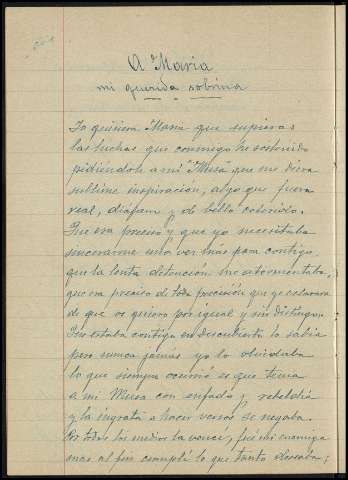 A Maria
mi querida sobrina
Yo quisiera Maria que supieras
las luchas que conmigo he sostenido
pidiéndole a mi "Musa" que me diera
sublime inspiración, algo que fuera
real, diáfano y de bello colorido.
Que era preciso y que yo necesitaba
sincerarme una vez más para contigo,
que la lenta detención me atormentaba,
que era preciso de toda precisión que yo aclarara
de que os quiero por igual y sin distingos.
Que estaba contigo en descubierto lo sabia
pero nunca jamás yo lo olvidaba
lo que siempre ocurrió es que tenia
a mi Musa con enfado y rebeldia
y la ingrata a hacer versos se negaba.
Por todos los medios la vencí, fué mi enemiga
mas al fin cumplí lo que tanto deseaba;